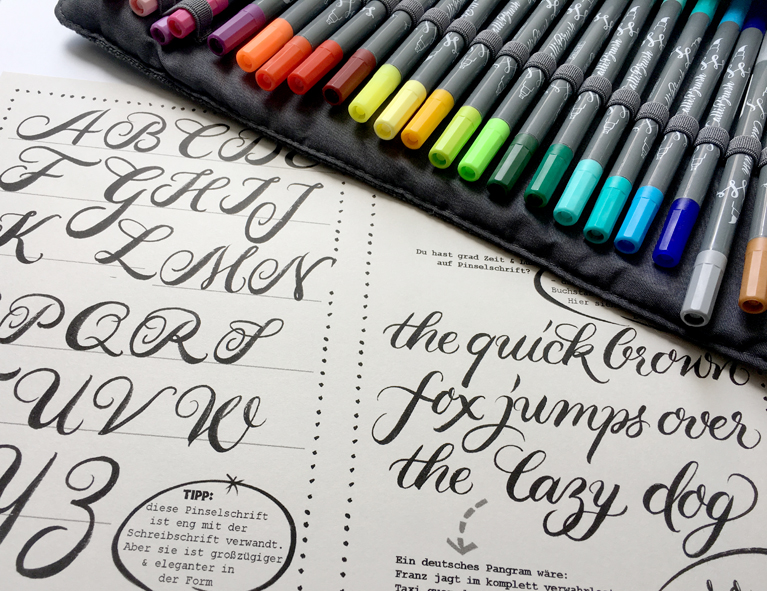 A B C D
F G H I J
K L M N
P Q R S
T U V W
Y Z
TIPP:
diese Pinselschrift
ist eng mit der
Schreibschrift verwandt.
Aber sie ist großzügiger
& eleganter in
der Form
Du hast grad Zeit &
auf Pinselschrift?
Hier
the quick brown
fox jumps over
the lazy dog
Ein deutsches Pangram wäre:
Franz jagt im komplett
Taxi